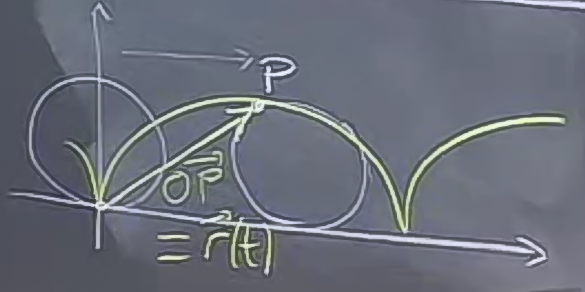 P
$\overrightarrow{OP}$
$= \vec{r}(t)$